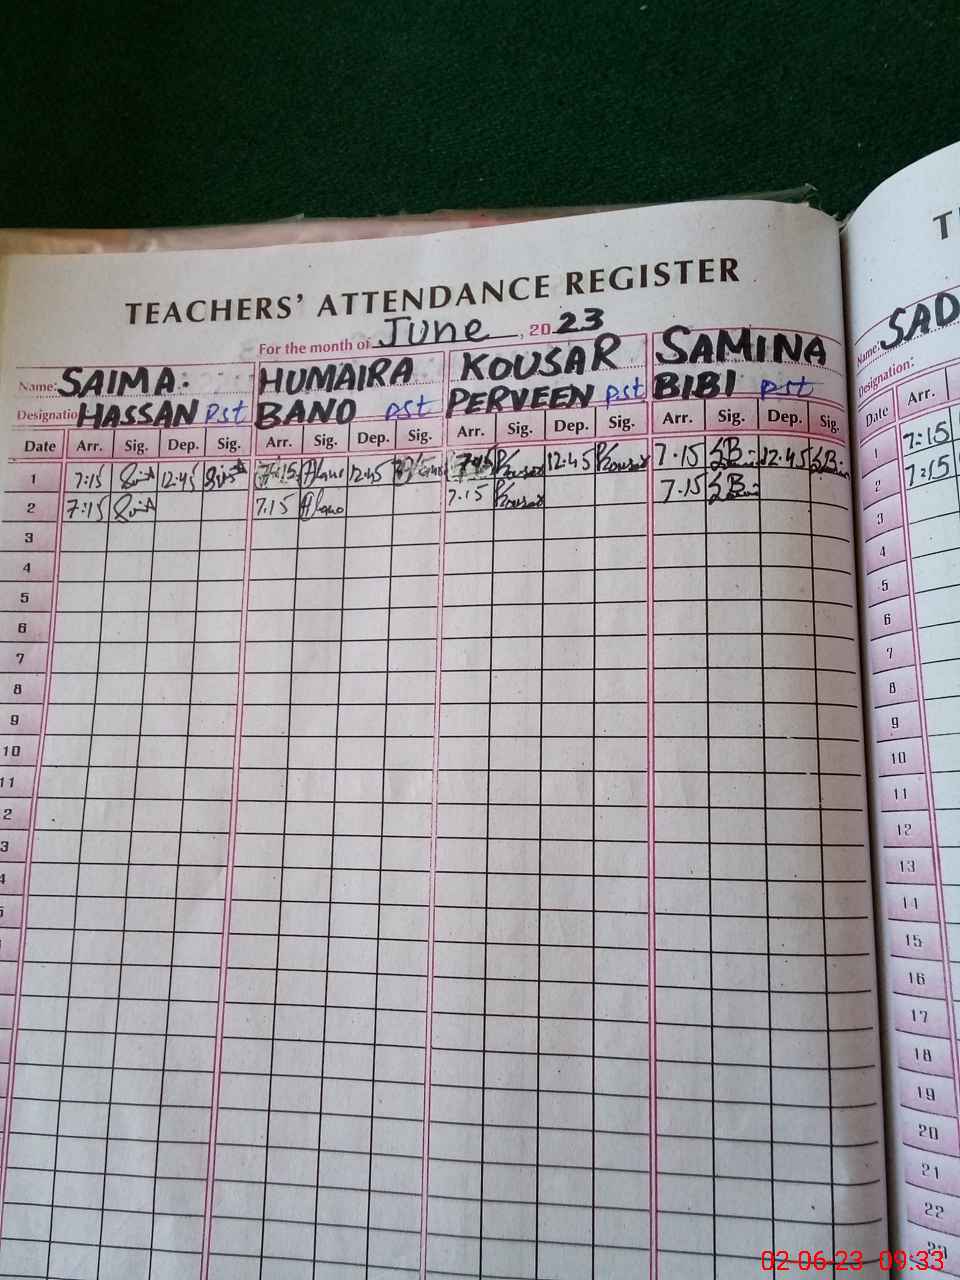 TEACHERS' ATTENDANCE REGISTER
For the month of June, 2023
Name: SAIMA HASSAN HUMAIRA BANO KOUSAR PERVEEN SAMINA BIBI
Designation: Pst Pst Pst Pst
Date Arr. Sig. Dep. Sig. Arr. Sig. Dep. Sig. Arr. Sig. Dep. Sig. Arr. Sig. Dep. Sig.
1 7:15 12:45 7:15 12:45 12:45 7.15 12:45
2 7:15 7.15 7.15 7.15
3
4
5
6
7
8
9
10
11
2
3
4
5
T
Name: SAD
Designation:
Date Arr.
1 7:15
2 7:15
3
4
5
6
7
8
9
10
11
12
13
14
15
16
17
18
19
20
21
22
02-06-23 09:33